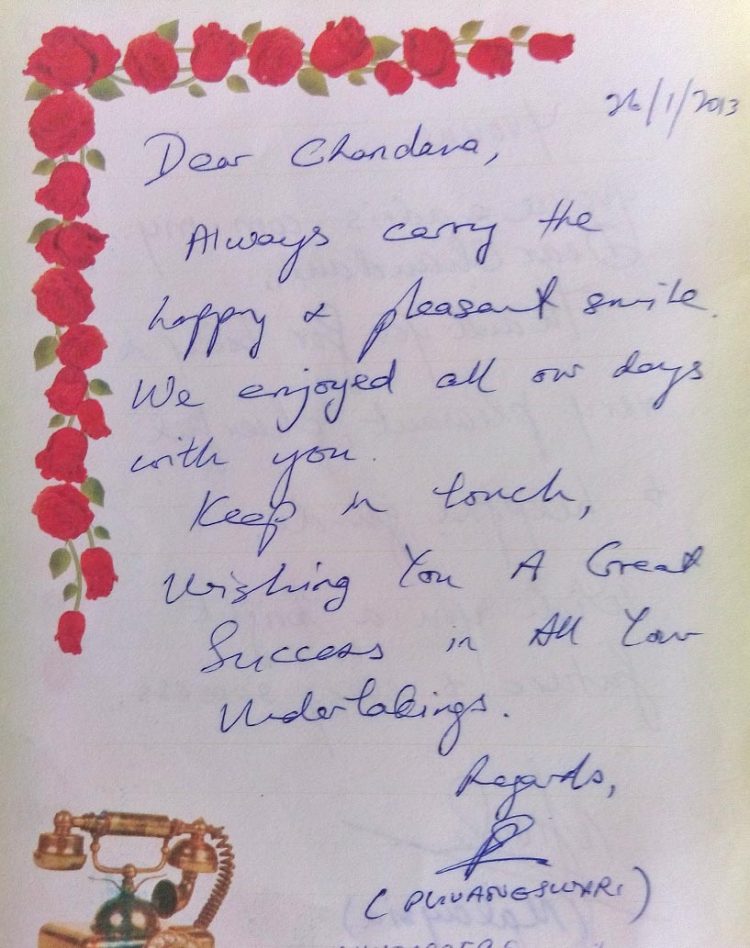 26/1/2013
Dear Chandana,
Always carry the
happy & pleasant smile.
We enjoyed all our days
with you.
Keep in touch,
Wishing You A Great
Success in All Your
Undertakings.
Regards,
(PUVANESWARI)